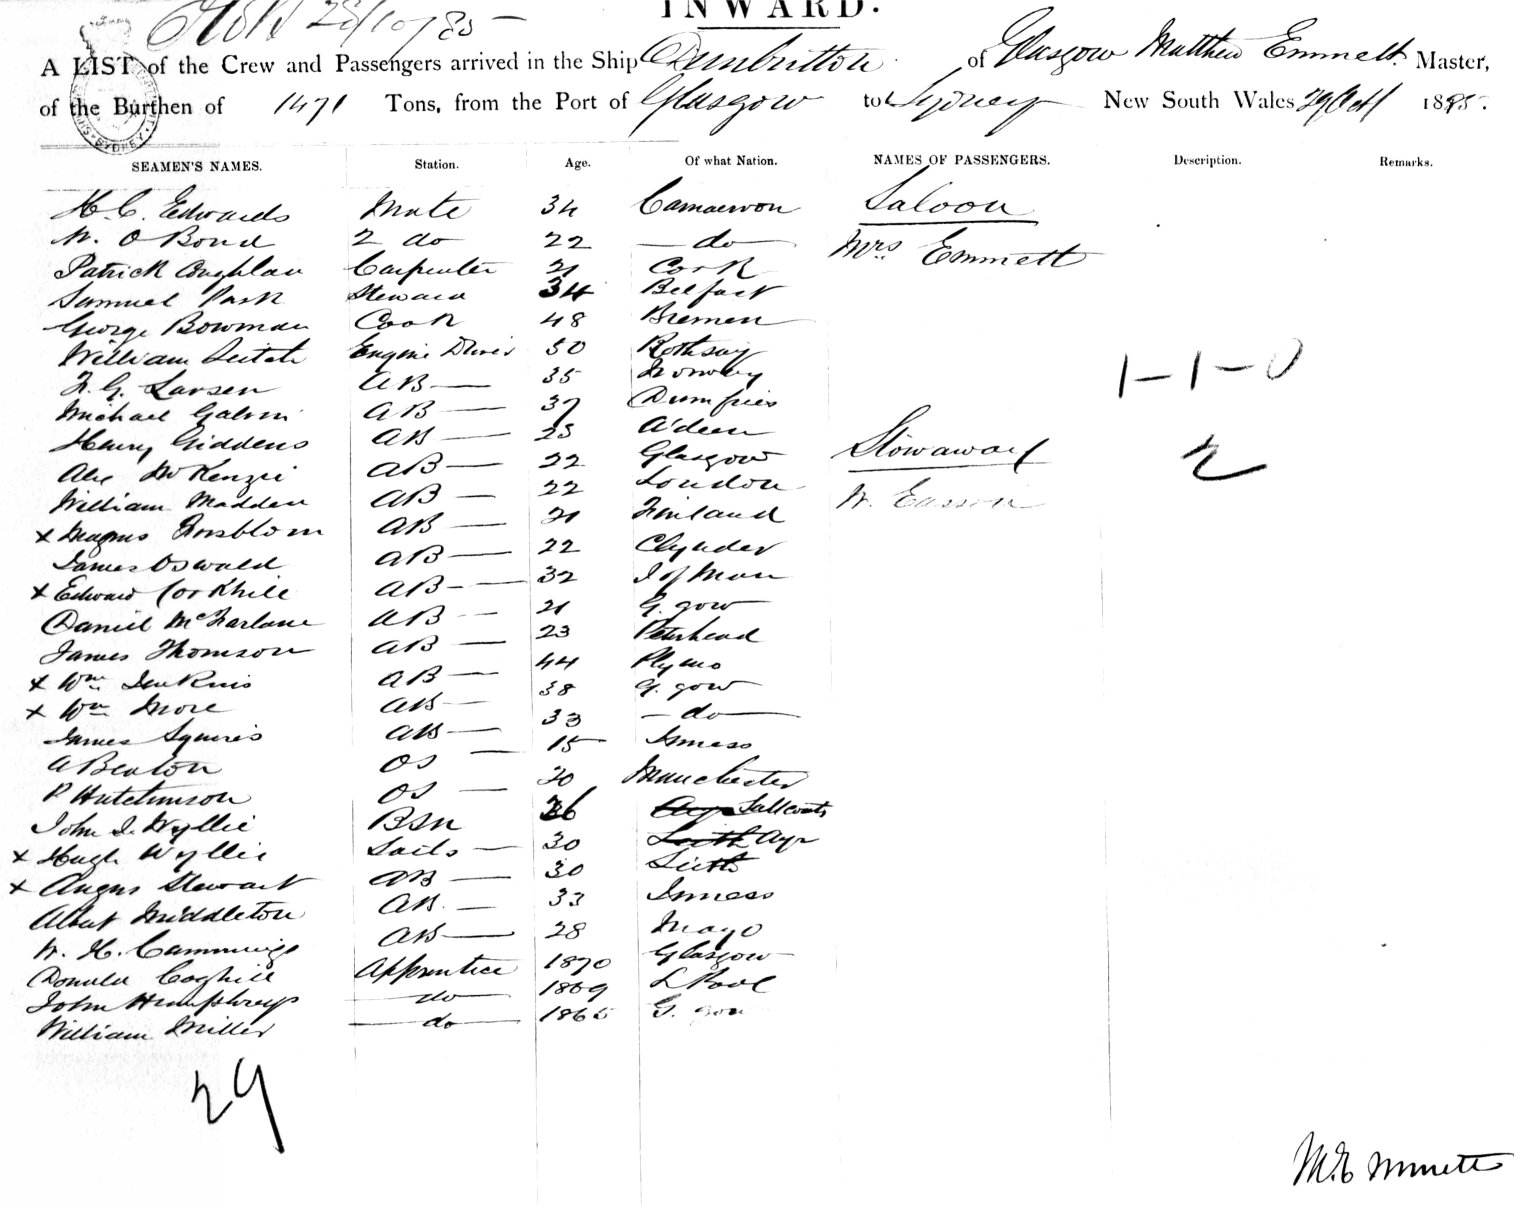 INWARD.
A LIST of the Crew and Passengers arrived in the Ship Dumbritton of Glasgow Matthew Emmett Master,
of the Burthen of 1471 Tons, from the Port of Glasgow to Sydney New South Wales 29 Oct 1885.
SEAMEN'S NAMES. Station. Age. Of what Nation. NAMES OF PASSENGERS. Description. Remarks.
H. C. Edwards Mate 34 Carnaervon Saloon
W. O Bond 2 do 22 do Mrs Emmett
Patrick Coughlan Carpenter 21 Cork
Samuel Park Steward 34 Belfast
George Bowman Cook 48 Bremen
William Leitch Engine Driver 50 Rothsay
F. G. Larsen AB 35 Norway 1-1-0
Michael Galvin AB 37 Dumfries
Henry Giddens AB 25 A'deen Stowaway 2
Alex McKenzie AB 22 Glasgow
William Madden AB 22 London W. Easson
x Magnus Forsblom AB 21 Finland
James Oswald AB 22 Clynder
x Edward Corkhill AB 32 I of Man
Daniel McFarlane AB 21 G.gow
James Thomson AB 23 Peterhead
x Wm Jenkins AB 44 Plymo
x Wm More AB 38 G.gow
James Squires AB 33 do
A Beaton OS 15 Inness
P Hutchinson OS 20 Manchester
John J. Wyllie BSN 26 Ayr Saltcoats
x Hugh Wyllie Sails 30 Leith Ayr
x Angus Stewart AB 30 Leith
Albert Middleton AB 33 Inness
W. H. Cummings AB 28 Mayo
Donald Coghill Apprentice 1870 Glasgow
John Humphreys do 1869 L Pool
William Miller do 1865 G.gow
29
M. Emmett